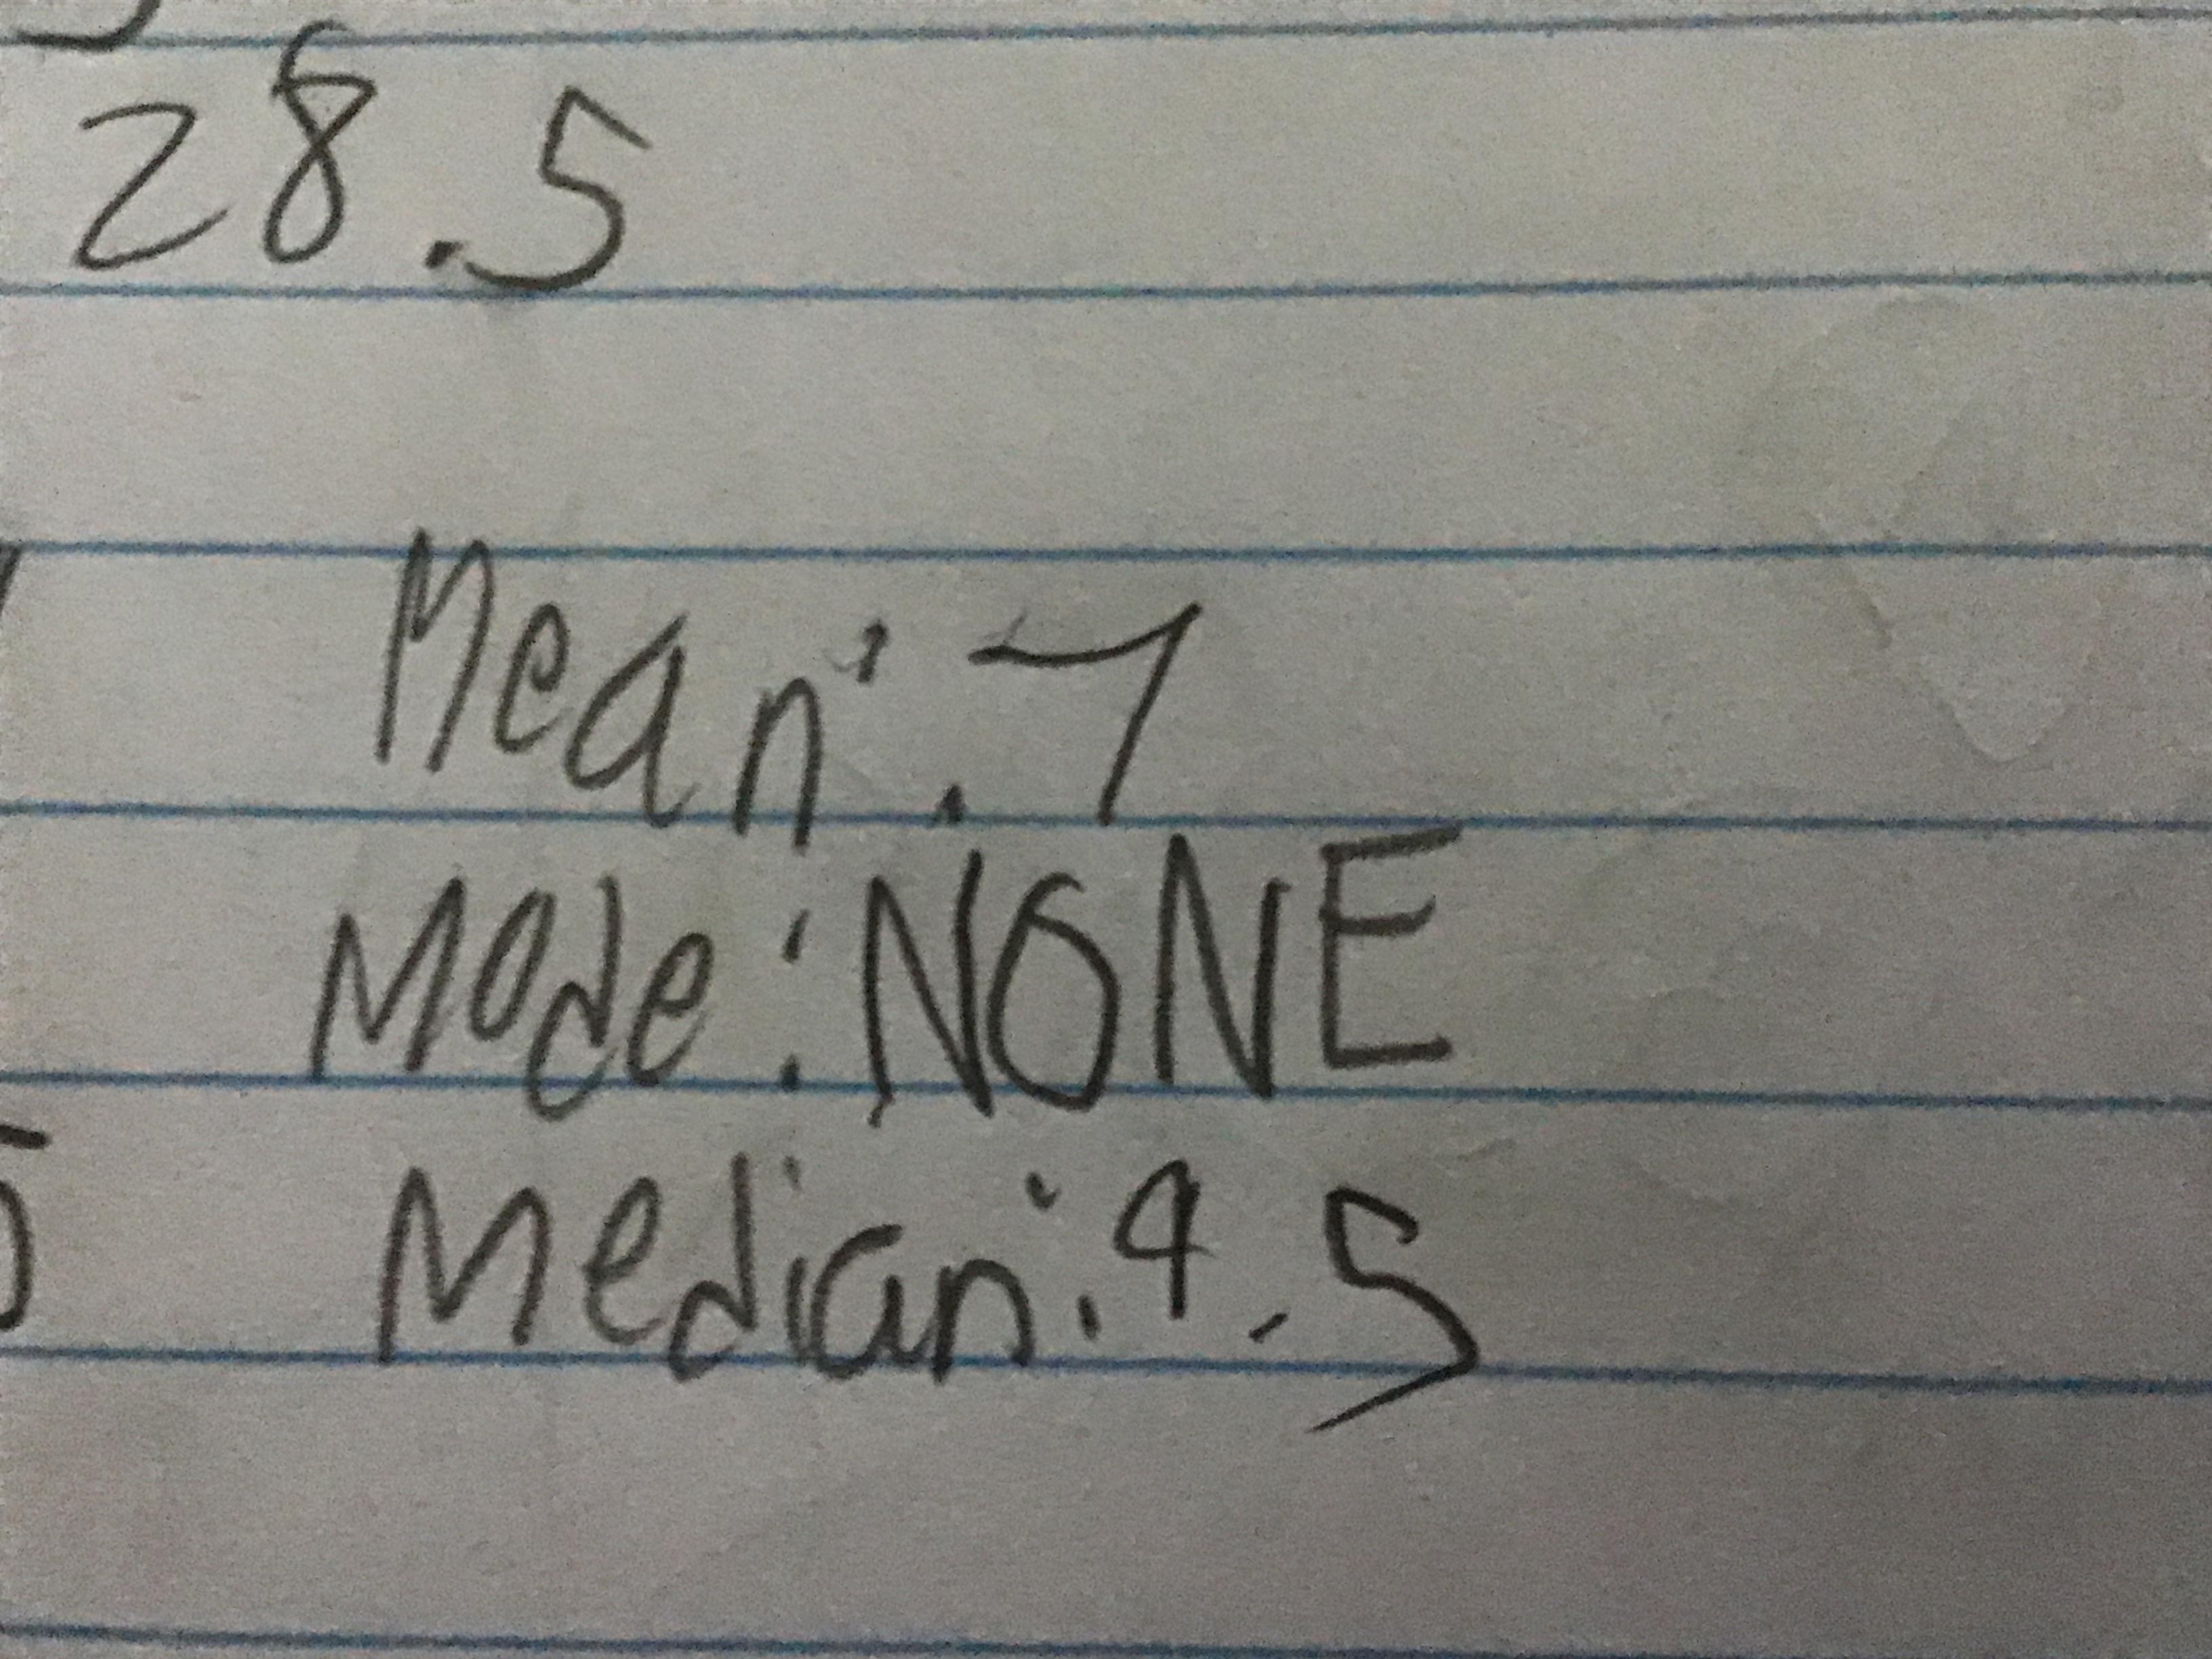 28.5
Mean: 7
Mode: NONE
Median: 4.5